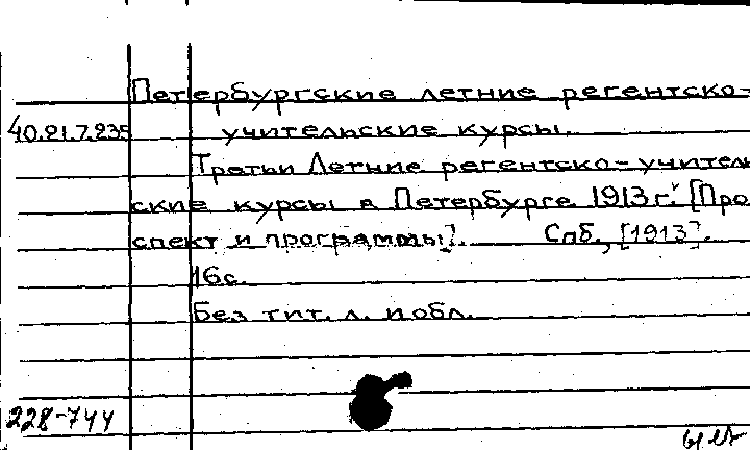 Петербургские летние регентско-
40.21.7.235 учительские курсы.
Третьи Летние регентско-учитель
ские курсы в Петербурге 1913 г. [Про
спект и программы]. Спб., [1913].
16с.
Без тит. л. и обл.
228-744